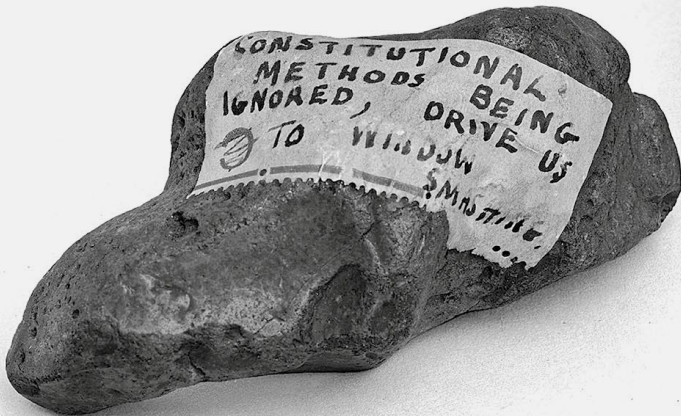 CONSTITUTIONAL
METHODS BEING
IGNORED, DRIVE US
TO WINDOW
SMASHING.